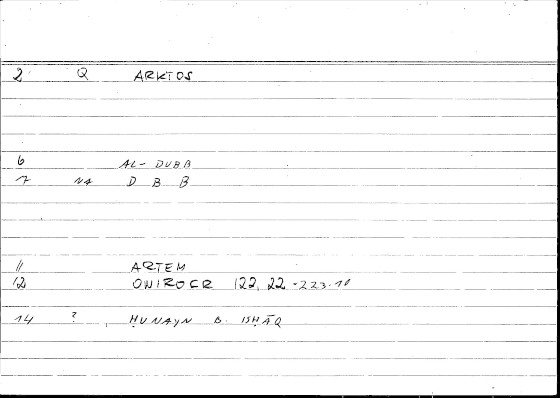 2 Q ARKTOS
6 AL-DUBB
7 NA D B B
11 ARTEM
12 ONIROCR 122, 22-223.10
14 ? ḤUNAYN B. ISḤĀQ